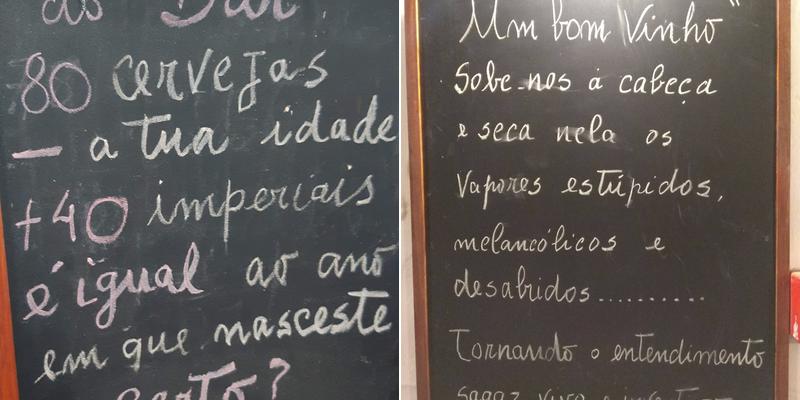 ao Bar.
80 cervejas
— a tua idade
+40 imperiais
é igual ao ano
em que nasceste
certo?
Um bom Vinho"
Sobe-nos à cabeça
e seca nela os
Vapores estúpidos,
melancólicos e
desabridos..........
Tornando o entendimento
sagaz vivo e